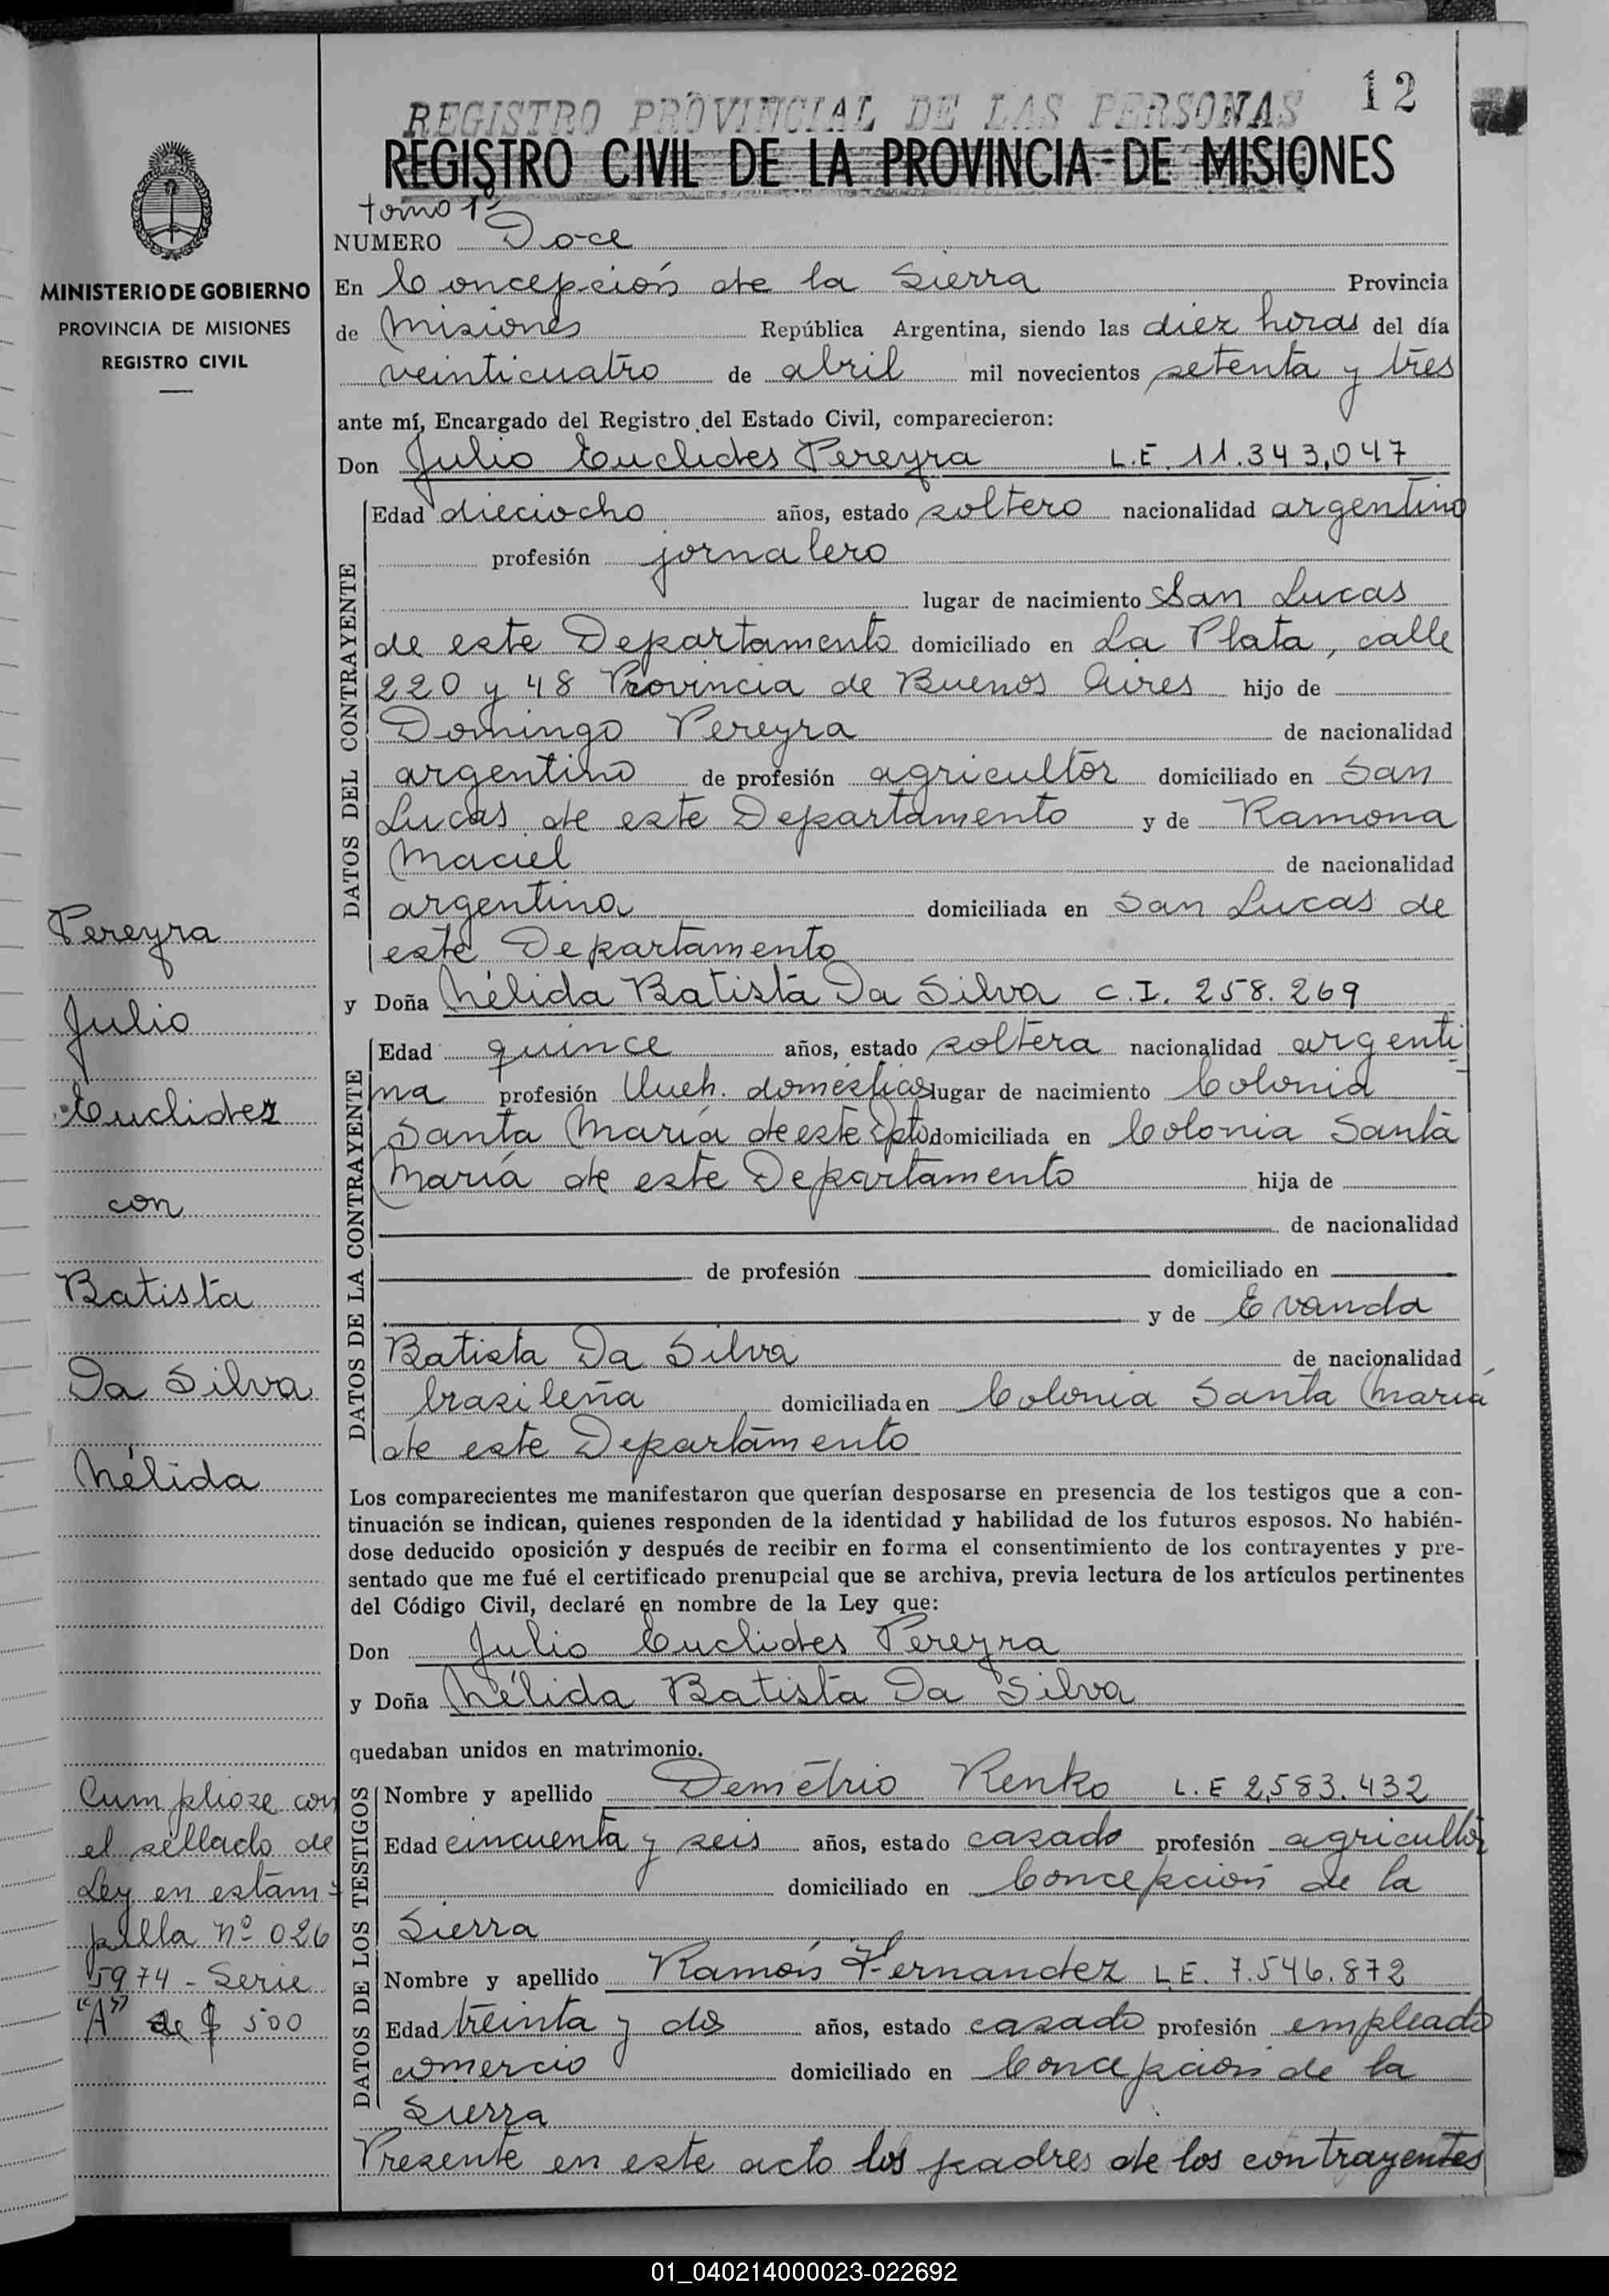 12
REGISTRO PROVINCIAL DE LAS PERSONAS
REGISTRO CIVIL DE LA PROVINCIA DE MISIONES
tomo 1º
NUMERO Doce
En Concepción de la Sierra Provincia
de Misiones República Argentina, siendo las diez horas del día
veinticuatro de abril mil novecientos setenta y tres
ante mí, Encargado del Registro del Estado Civil, comparecieron:
Don Julio Euclides Pereyra L.E. 11.343,047
DATOS DEL CONTRAYENTE
Edad dieciocho años, estado soltero nacionalidad argentino
profesión jornalero
lugar de nacimiento San Lucas
de este Departamento domiciliado en La Plata, calle
220 y 48 Provincia de Buenos Aires hijo de
Domingo Pereyra de nacionalidad
argentino de profesión agricultor domiciliado en San
Lucas de este Departamento y de Ramona
Maciel de nacionalidad
argentina domiciliada en San Lucas de
este Departamento
y Doña Nélida Batista Da Silva C.I. 258.269
DATOS DE LA CONTRAYENTE
Edad quince años, estado soltera nacionalidad argenti
na profesión Queh. domésticos lugar de nacimiento Colonia
Santa María de este Dpto domiciliada en Colonia Santa
María de este Departamento hija de
de nacionalidad
de profesión domiciliado en
y de Evanda
Batista Da Silva de nacionalidad
brasileña domiciliada en Colonia Santa María
de este Departamento
Los comparecientes me manifestaron que querían desposarse en presencia de los testigos que a con-
tinuación se indican, quienes responden de la identidad y habilidad de los futuros esposos. No habién-
dose deducido oposición y después de recibir en forma el consentimiento de los contrayentes y pre-
sentado que me fué el certificado prenupcial que se archiva, previa lectura de los artículos pertinentes
del Código Civil, declaré en nombre de la Ley que:
Don Julio Euclides Pereyra
y Doña Nélida Batista Da Silva
quedaban unidos en matrimonio.
DATOS DE LOS TESTIGOS
Nombre y apellido Demétrio Kenko L.E 2,583.432
Edad cincuenta y seis años, estado casado profesión agricultor
domiciliado en Concepción de la
Sierra
Nombre y apellido Ramón Hernandez L.E. 7.546.872
Edad treinta y dos años, estado casado profesión empleado
comercio domiciliado en Concepción de la
Sierra
Presente en este acto los padres de los contrayentes
MINISTERIO DE GOBIERNO
PROVINCIA DE MISIONES
REGISTRO CIVIL
Pereyra
Julio
Euclides
con
Batista
Da Silva
Nélida
Cumpliose con
el sellado de
Ley en estam-
pilla nº 026
5974 - Serie
"A" de $ 500
01_040214000023-022692